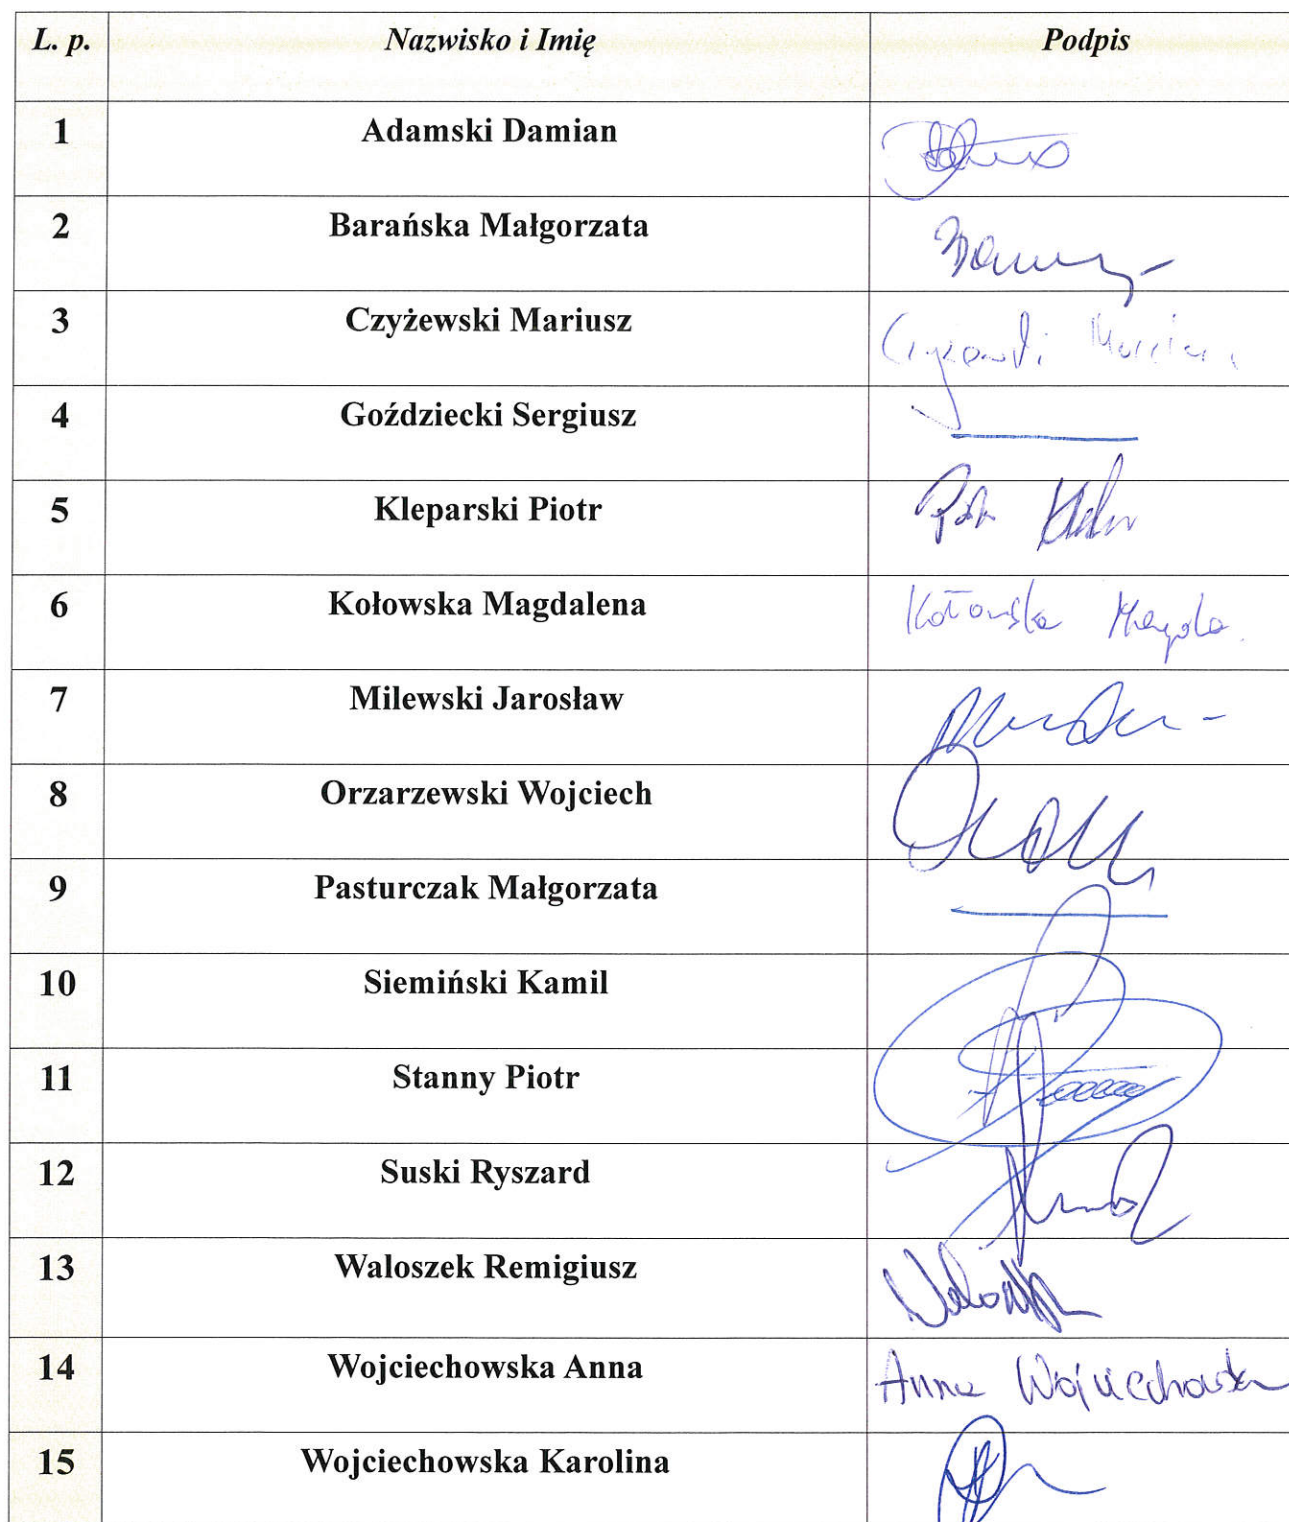 L. p. Nazwisko i Imię Podpis
1 Adamski Damian
2 Barańska Małgorzata
3 Czyżewski Mariusz
4 Goździecki Sergiusz
5 Kleparski Piotr Piotr
6 Kołowska Magdalena Kołowska Magda
7 Milewski Jarosław
8 Orzarzewski Wojciech
9 Pasturczak Małgorzata
10 Siemiński Kamil
11 Stanny Piotr
12 Suski Ryszard
13 Waloszek Remigiusz
14 Wojciechowska Anna Anna Wojciechowska
15 Wojciechowska Karolina